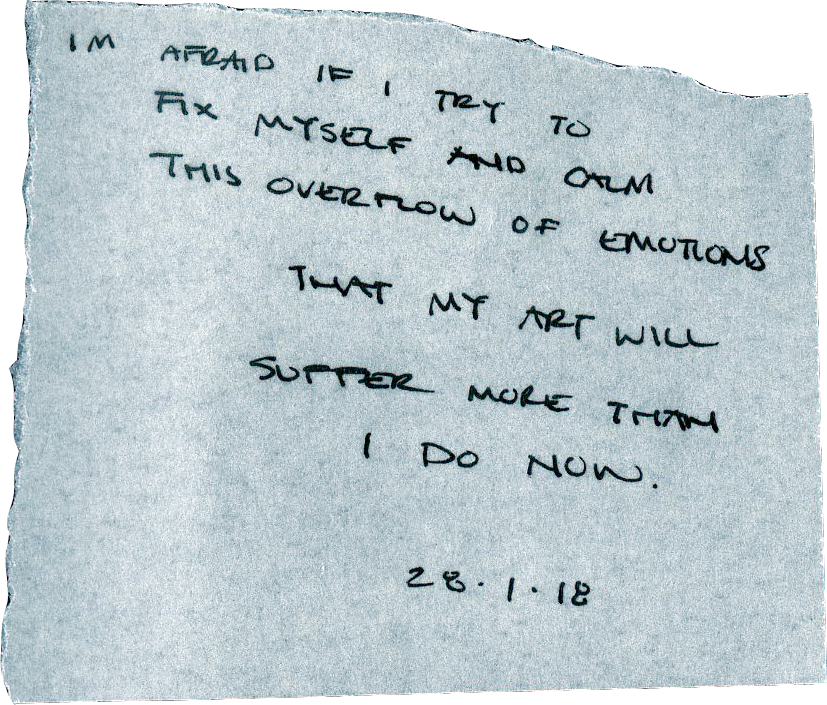 IM AFRAID IF I TRY TO
FIX MYSELF AND CALM
THIS OVERFLOW OF EMOTIONS
THAT MY ART WILL
SUFFER MORE THAN
I DO NOW.
28.1.18